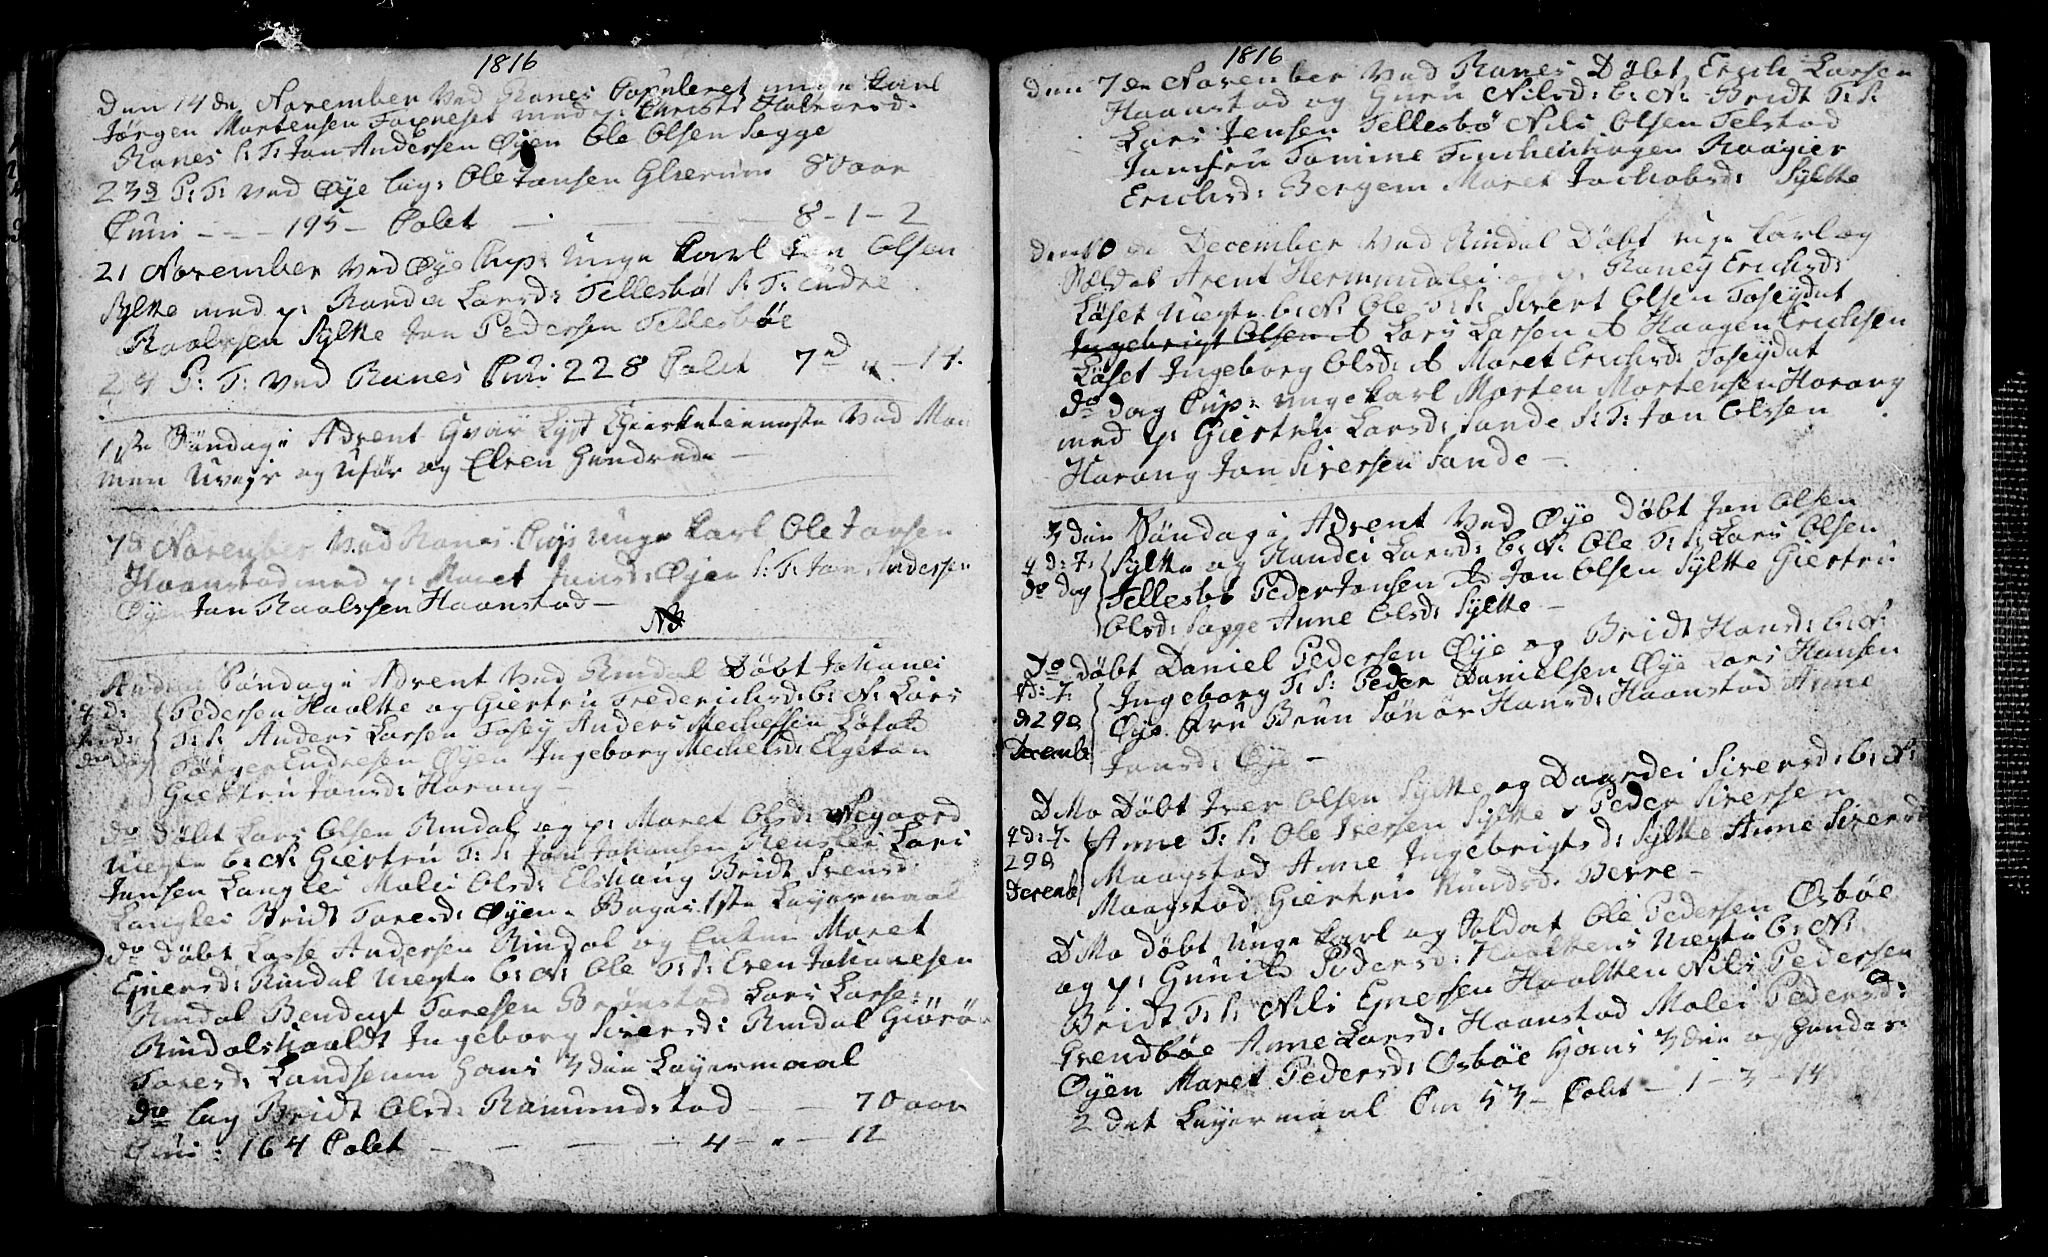 1816
den 14de November ved Ranes Copuleret unge karl
Jørgen Mortensen Toxneset med p. Christi Halvorsd.
Ranes S: T: Jon Andersen Øyen Ole Olsen Sagge
23 S. T: ved Øye lag: Ole Jonsen Glærum 80 aar
Cuni - - - 195 - Calet - - - 8 - 1 - 2
21 November ved Øye Cup: unge karl Jon Olsen
Sylte med p: Randei Larsd: Tellesbøl S: T: Endre
Roalvsen Sylte Jon Pedersen Tellesbøe
24 S: T: ved Ranes Cuni 228 Calet 7 " - 14.
1ste Søndag i Advent var lyst Kierketienneste ved Mo
men uveyr og ufør og Elven
7de November ved Ranes Cup unge karl Ole Larsen
Haanstad med p: Maret Jonsd: Øyen S: T: Jon Andersen
Øyen Jon Roalssen Haanstad -
NB
Anden Søndag i Advent ved Rindal Døbt Johanes
Pedersen Haaltte og Giertru Frederichsd: b: N: Lars
T: S: Anders Larsen Tosey Anders Mechelsen Løfald
Jørgen Endresen Øyen Ingeborg Mechelsd: Elgetun
Giertru Jonsd: Harang -
do døbt Lars Olsen Rindal og p: Maret Olsd: Negaard
uegte b: N: Giertru T: S: Jon Johansen Lars
Jonsen Langlei Malei Olsd: Elshaug Bridt Svensd:
Langlei Bridt Toresd: Øyen - Begges 1ste Leyermaal
do døbt Lasse Andersen Rindal og Enken Maret
Ejnersd: Rindal uegte b: N: Ole T: S: Even Johannesen
Rindal Bendigt Toresen Brønstad Lars Larse:
Rindalshaaldt Ingeborg Siversd: Rindal Giørø
Toresd: Landsem Hans 3die Leyermaal
do lag Bridt Olsd: Romundstad - - 70 aar
Cuni: 164 Calet - - - 4 - " - 12
1816
den 7de November ved Ranes Døbt Erich Larsen
Haanstad og Guru Nilsd: b: N: Bridt T: S:
Lars Jensen Tellesbø Nils Olsen Telstad
Jomfru Tomine Roagier
Erichsd: Bergem Maret Jachobsd: Sylte
den 10de December ved Rindal Døbt unge karl og
Soldat Arent Hermundslei og p: Raney Erichsd:
Løset uegte b: N: Ole T: S: Sivert Olsen Toseydal
Ingebrigt Olsen Lars Larsen Haagen Erichsen
Løset Ingeborg Olsd: Maret Erichsd: Toseydal
do dag Cup: unge karl Morten Mortensen Harang
med p: Giertru Larsd: Sande S: T: Jon Olssen
Harang Jon Siversen Sande -
3die Søndag i Advent ved Øye Døbt Jon Olsen
Sylte og Randei Larsd: b: N: Ole T: S: Lars Olsen
do dag Tellesbø Peder Jonsen Jon Olsen Sylte Giertru
Olsd: Sagge Anne Olsd: Sylte -
Do døbt Daniel Pedersen Øye og Bridt Hansd: b: N:
Ingeborg T: S: Peder Danielsen Øye Lars Hansen
d 29d Øye Fru Brun Sønør Hansd: Haanstad Anne
Decemb Jonsd: Øye -
Ditto Døbt Iver Olsen Sylte og Daardei Siversd: b: N:
Anne T: S: Ole Iversen Sylte Peder Siversen
29d Moagstad Anne Ingebrigtsd: Sylte Anne Siversd
Decemb Moagstad Giertru Knudsd: Bævre -
Ditto døbt unge karl og Soldat Ole Pedersen Øsbøe
og p: Gunild Pedersd: Haalttens uegte b: N:
Bridt T: S: Nils Ejnersen Haaltten Nils Pedersen
Grendbøe Anne Larsd: Haanstad Malei Pedersd:
Øyen Maret Pedersd: Øsbøe Hans 3die og Hendes
2det Leyermaal Cu 53 - Calet - 1 - 3 - 14